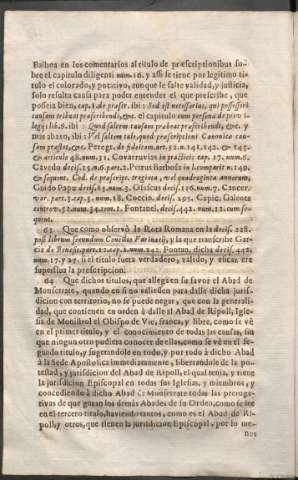 Balboa en los comentarios al titulo de præscriptionibus so-
bre el capitulo diligenti num. 16. y assi se tiene por legitimo ti-
tulo el colorado, y putativo, aunque le falte validad, y justicia,
solo resulta causa para poder entender el que prescribe, que
posseia bien, cap. 1. de præscr. ibi: Sed est necessarius, qui possessori
causam tribuat præscribendi, &c. el capitulo cum persona de privi-
leg. lib. 6. ibi: Quod saltem causam præbeat præscribendi, &c. y
mas abaxo, ibi: Vel saltem tale, quod præscriptioni Canonica cau-
sam præstet, &c. Peregr. de fideicom. art. 52. n. 141. 142. & 145.
& articulo 48. num. 31. Covarruvias in practicis cap. 17. num. 6.
Cavedo decis. 25. n. 6. part. 2. Petrus Barbosa in l. comparit n. 140.
& sequent. Cod. de præscript. triginta, vel quadraginta annorum,
Guido Papæ decis. 85. num. 3. Osascus decis. 116. num. 7. Cancer.
var. part. 3. cap. 3. num. 18. Coccin. decis. 295. Capic. Galeota
centro 2. num. 34. tom. 1. Fontanel. decis. 442. num. 12. cum se-
quent.
63 Que como observò la Rota Romana en la decis. 228.
post librum secundum Consilia Farinacij, y la que transcribe Gar-
cia de Beneficijs part. 12. cap. 2. num. 142. Fontan. dicha decis. 442.
num. 17. y 25. si el titulo fuera verdadero, valido, y eficaz era
superflua la prescripcion.
64 Que dichos titulos, que alega en su favor el Abad de
Monserrate, quando en si no validen para darle dicha jurisdi-
diccion con territorio, no se puede negar, que con la generali-
dad, que contienen en orden à darle al Abad de Ripoll, Igle-
sia de Monistrol el Obispo de Vic, franca, y libre, como se vè
en el primer titulo, y el conocimiento de todas las causas, sin
que ningun otro pudiera conocer de ellas, como se vè en el se-
gundo titulo, y sugetandole en todo, y por todo à dicho Abad
à la Sede Apostolica inmediatamente, liberandole de la po-
testad, y jurisdiccion del Abad de Ripoll, el qual tenia, y tiene
la jurisdiccion Episcopal en todas sus Iglesias, y miembros, y
concediendo à dicho Abad de Monserrate todas las preroga-
tivas de que gozan los demàs Abades de su Orden, como se lee
en el tercero titulo, haviendo tantos, como es el Abad de Ri-
poll, y otros, que tienen la jurisdiccion Episcopal, por lo me-
nos